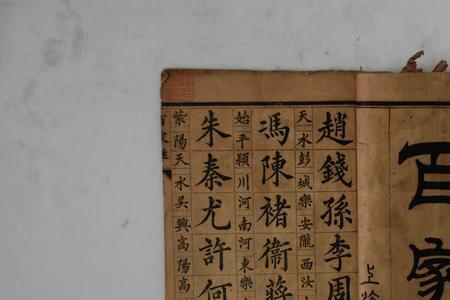 百家
趙錢孫李周
天水彭城樂安隴西汝
馮陳褚衞蔣
始平潁川河南河東樂
朱秦尤許何
紫陽天水吳興高陽高
百家姓